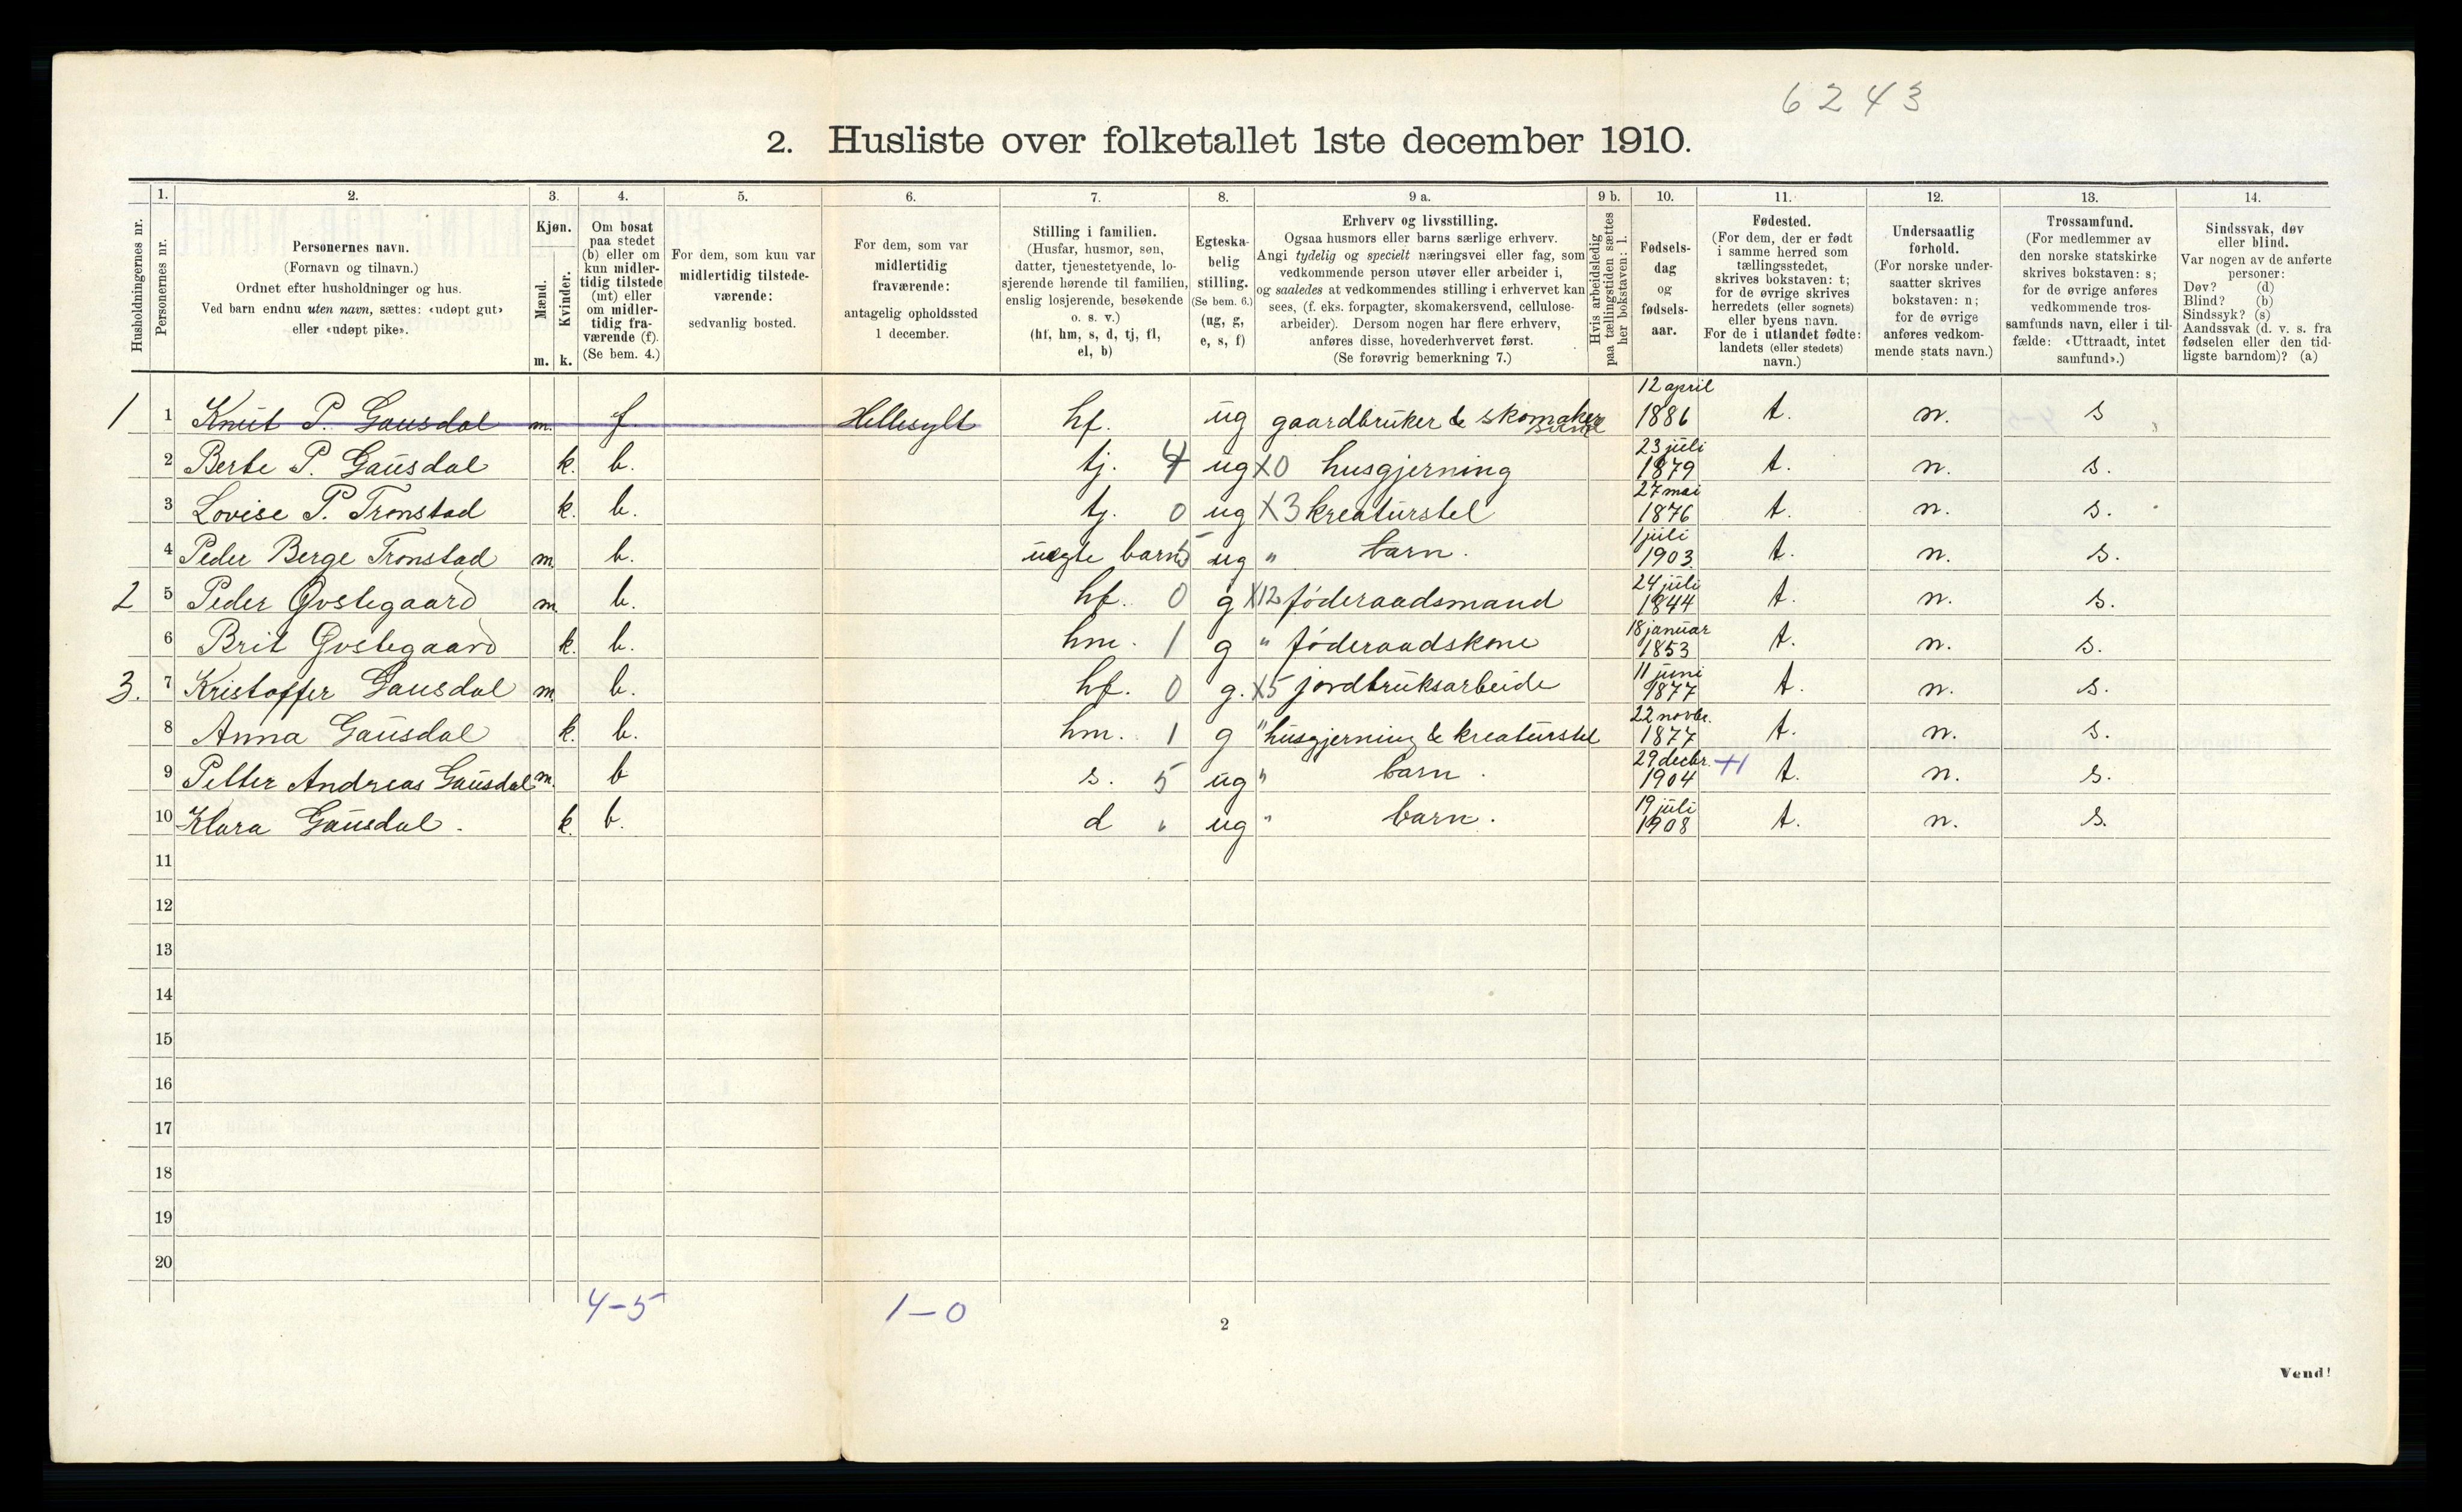 6243
2. Husliste over folketallet 1ste december 1910.
Husholdningernes nr.
1.
Personernes nr.
2.
Personernes navn.
(Fornavn og tilnavn.)
Ordnet efter husholdninger og hus.
Ved barn endnu uten navn, sættes: «udøpt gut»
eller «udøpt pike».
3.
Kjøn.
Mænd.
Kvinder.
m. k.
4.
Om bosat
paa stedet
(b) eller om
kun midler-
tidig tilstede
(mt) eller
om midler-
tidig fra-
værende (f).
(Se bem. 4.)
5.
For dem, som kun var
midlertidig tilstede-
værende:
sedvanlig bosted.
6.
For dem, som var
midlertidig
fraværende:
antagelig opholdssted
1 december.
7.
Stilling i familien.
(Husfar, husmor, søn,
datter, tjenestetyende, lo-
sjerende hørende til familien,
enslig losjerende, besøkende
o. s. v.)
(hf, hm, s, d, tj, fl,
el, b)
8.
Egteska-
belig
stilling.
(Se bem. 6.)
(ug, g,
e, s, f)
9 a.
Erhverv og livsstilling.
Ogsaa husmors eller barns særlige erhverv.
Angi tydelig og specielt næringsvei eller fag, som
vedkommende person utøver eller arbeider i,
og saaledes at vedkommendes stilling i erhvervet kan
sees, (f. eks. forpagter, skomakersvend, cellulose-
arbeider). Dersom nogen har flere erhverv,
anføres disse, hovederhvervet først.
(Se forøvrig bemerkning 7.)
9 b.
Hvis arbeidsledig
paa tællingstiden sættes
her bokstaven: l.
10.
Fødsels-
dag
og
fødsels-
aar.
11.
Fødested.
(For dem, der er født
i samme herred som
tællingsstedet,
skrives bokstaven: t;
for de øvrige skrives
herredets (eller sognets)
eller byens navn.
For de i utlandet fødte:
landets (eller stedets)
navn.)
12.
Undersaatlig
forhold.
(For norske under-
saatter skrives
bokstaven: n;
for de øvrige
anføres vedkom-
mende stats navn.)
13.
Trossamfund.
(For medlemmer av
den norske statskirke
skrives bokstaven: s;
for de øvrige anføres
vedkommende tros-
samfunds navn, eller i til-
fælde: «Uttraadt, intet
samfund».)
14.
Sindssvak, døv
eller blind.
Var nogen av de anførte
personer:
Døv? (d)
Blind? (b)
Sindssyk? (s)
Aandssvak (d. v. s. fra
fødselen eller den tid-
ligste barndom)? (a)
1 1 Knut P. Gausdal m. f. Hellesylt hf. ug gaardbruker & skomaker 12 april 1886 t. n. s
2 Berte P. Gausdal k. b. tj. 4 ug X0 husgjerning 23 juli 1879 t. n. s.
3 Lovise P. Tronstad k. b. tj. 0 ug X3 kreaturstel 27 mai 1876 t. n. s.
4 Peder Berge Tronstad m. b. uegte barn 5 ug " barn. 1 juli 1903 t. n. s.
2 5 Peder Øvstegaard m. b. hf. 0 g X12 føderaadsmand 24 juli 1844 t. n. s.
6 Brit Øvstegaard k. b. hm. 1 g " føderaadskone 18 januar 1853 t. n. s.
3. 7 Kristoffer Gausdal m b. hf. 0 g. X5 jordbruksarbeide 11 juni 1877 t. n. s.
8 Anna Gausdal k. b. hm. 1 g " husgjerning & kreaturstel 22 novbr. 1877 t. n. s.
9 Petter Andreas Gausdal m. b s. 5 ug " barn. 29 decbr. 1904 +1 t. n. s.
10 Klara Gausdal. k. b. d " ug " barn. 19 juli 1908 t. n. s.
11
12
13
14
15
16
17
18
19
20
4-5 1-0
2
Vend!